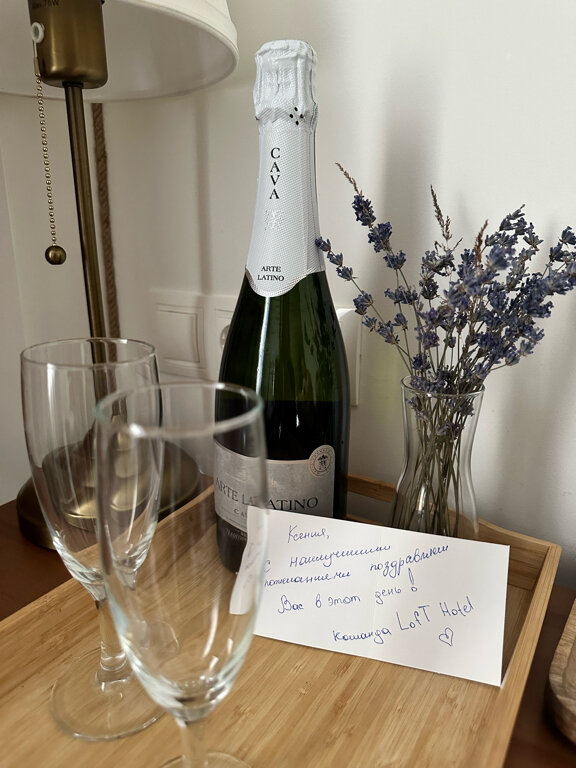 CAVA
ARTE
LATINO
ARTE LATINO
Ксения,
с наилучшими
пожеланиями поздравляем
Вас в этот день!
команда LofT Hotel